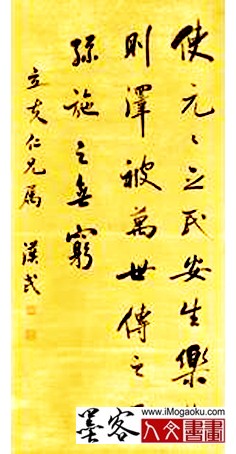 使元々之民安生樂
則澤被萬世傳之
孫施之無窮
立夫仁兄屬
漢民
www.iMogaoku.com
墨客
人文書畫